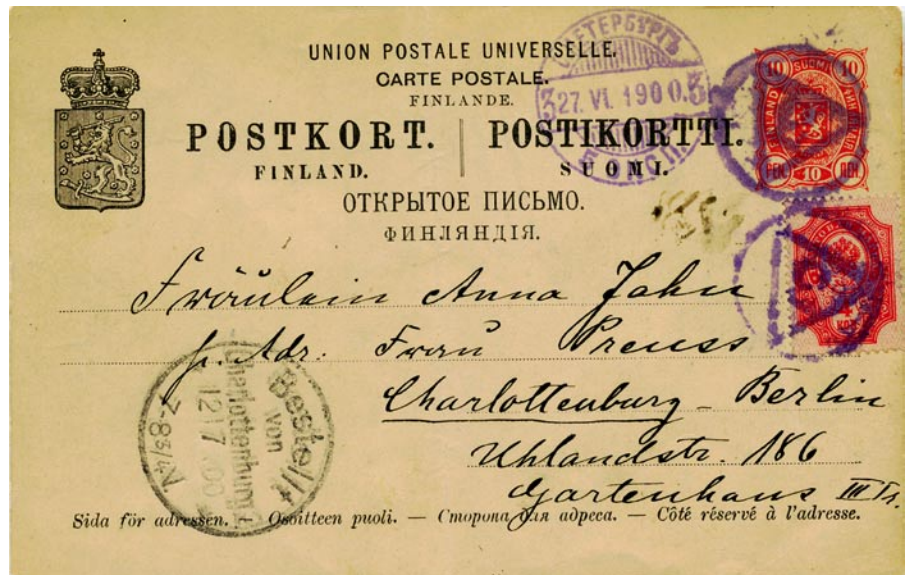 UNION POSTALE UNIVERSELLE.
CARTE POSTALE.
FINLANDE.
POSTKORT. | POSTIKORTTI.
FINLAND. SUOMI.
ОТКРЫТОЕ ПИСЬМО.
ФИНЛЯНДІЯ.
С.ПЕТЕРБУРГЪ
3 27. VI. 1900. 3
10 SUOMI 10
FINLAND
PEN. 10 ПЕН.
Fräulein Anna Jahn
p. Adr. Frau Preuss
Charlottenburg - Berlin
Uhlandstr. 186
Gartenhaus III Tr.
Bestellt
von
Charlottenburg
12 7 00
7-8¾N
Sida för adressen. — Osoitteen puoli. — Сторона для адреса. — Côté réservé à l'adresse.